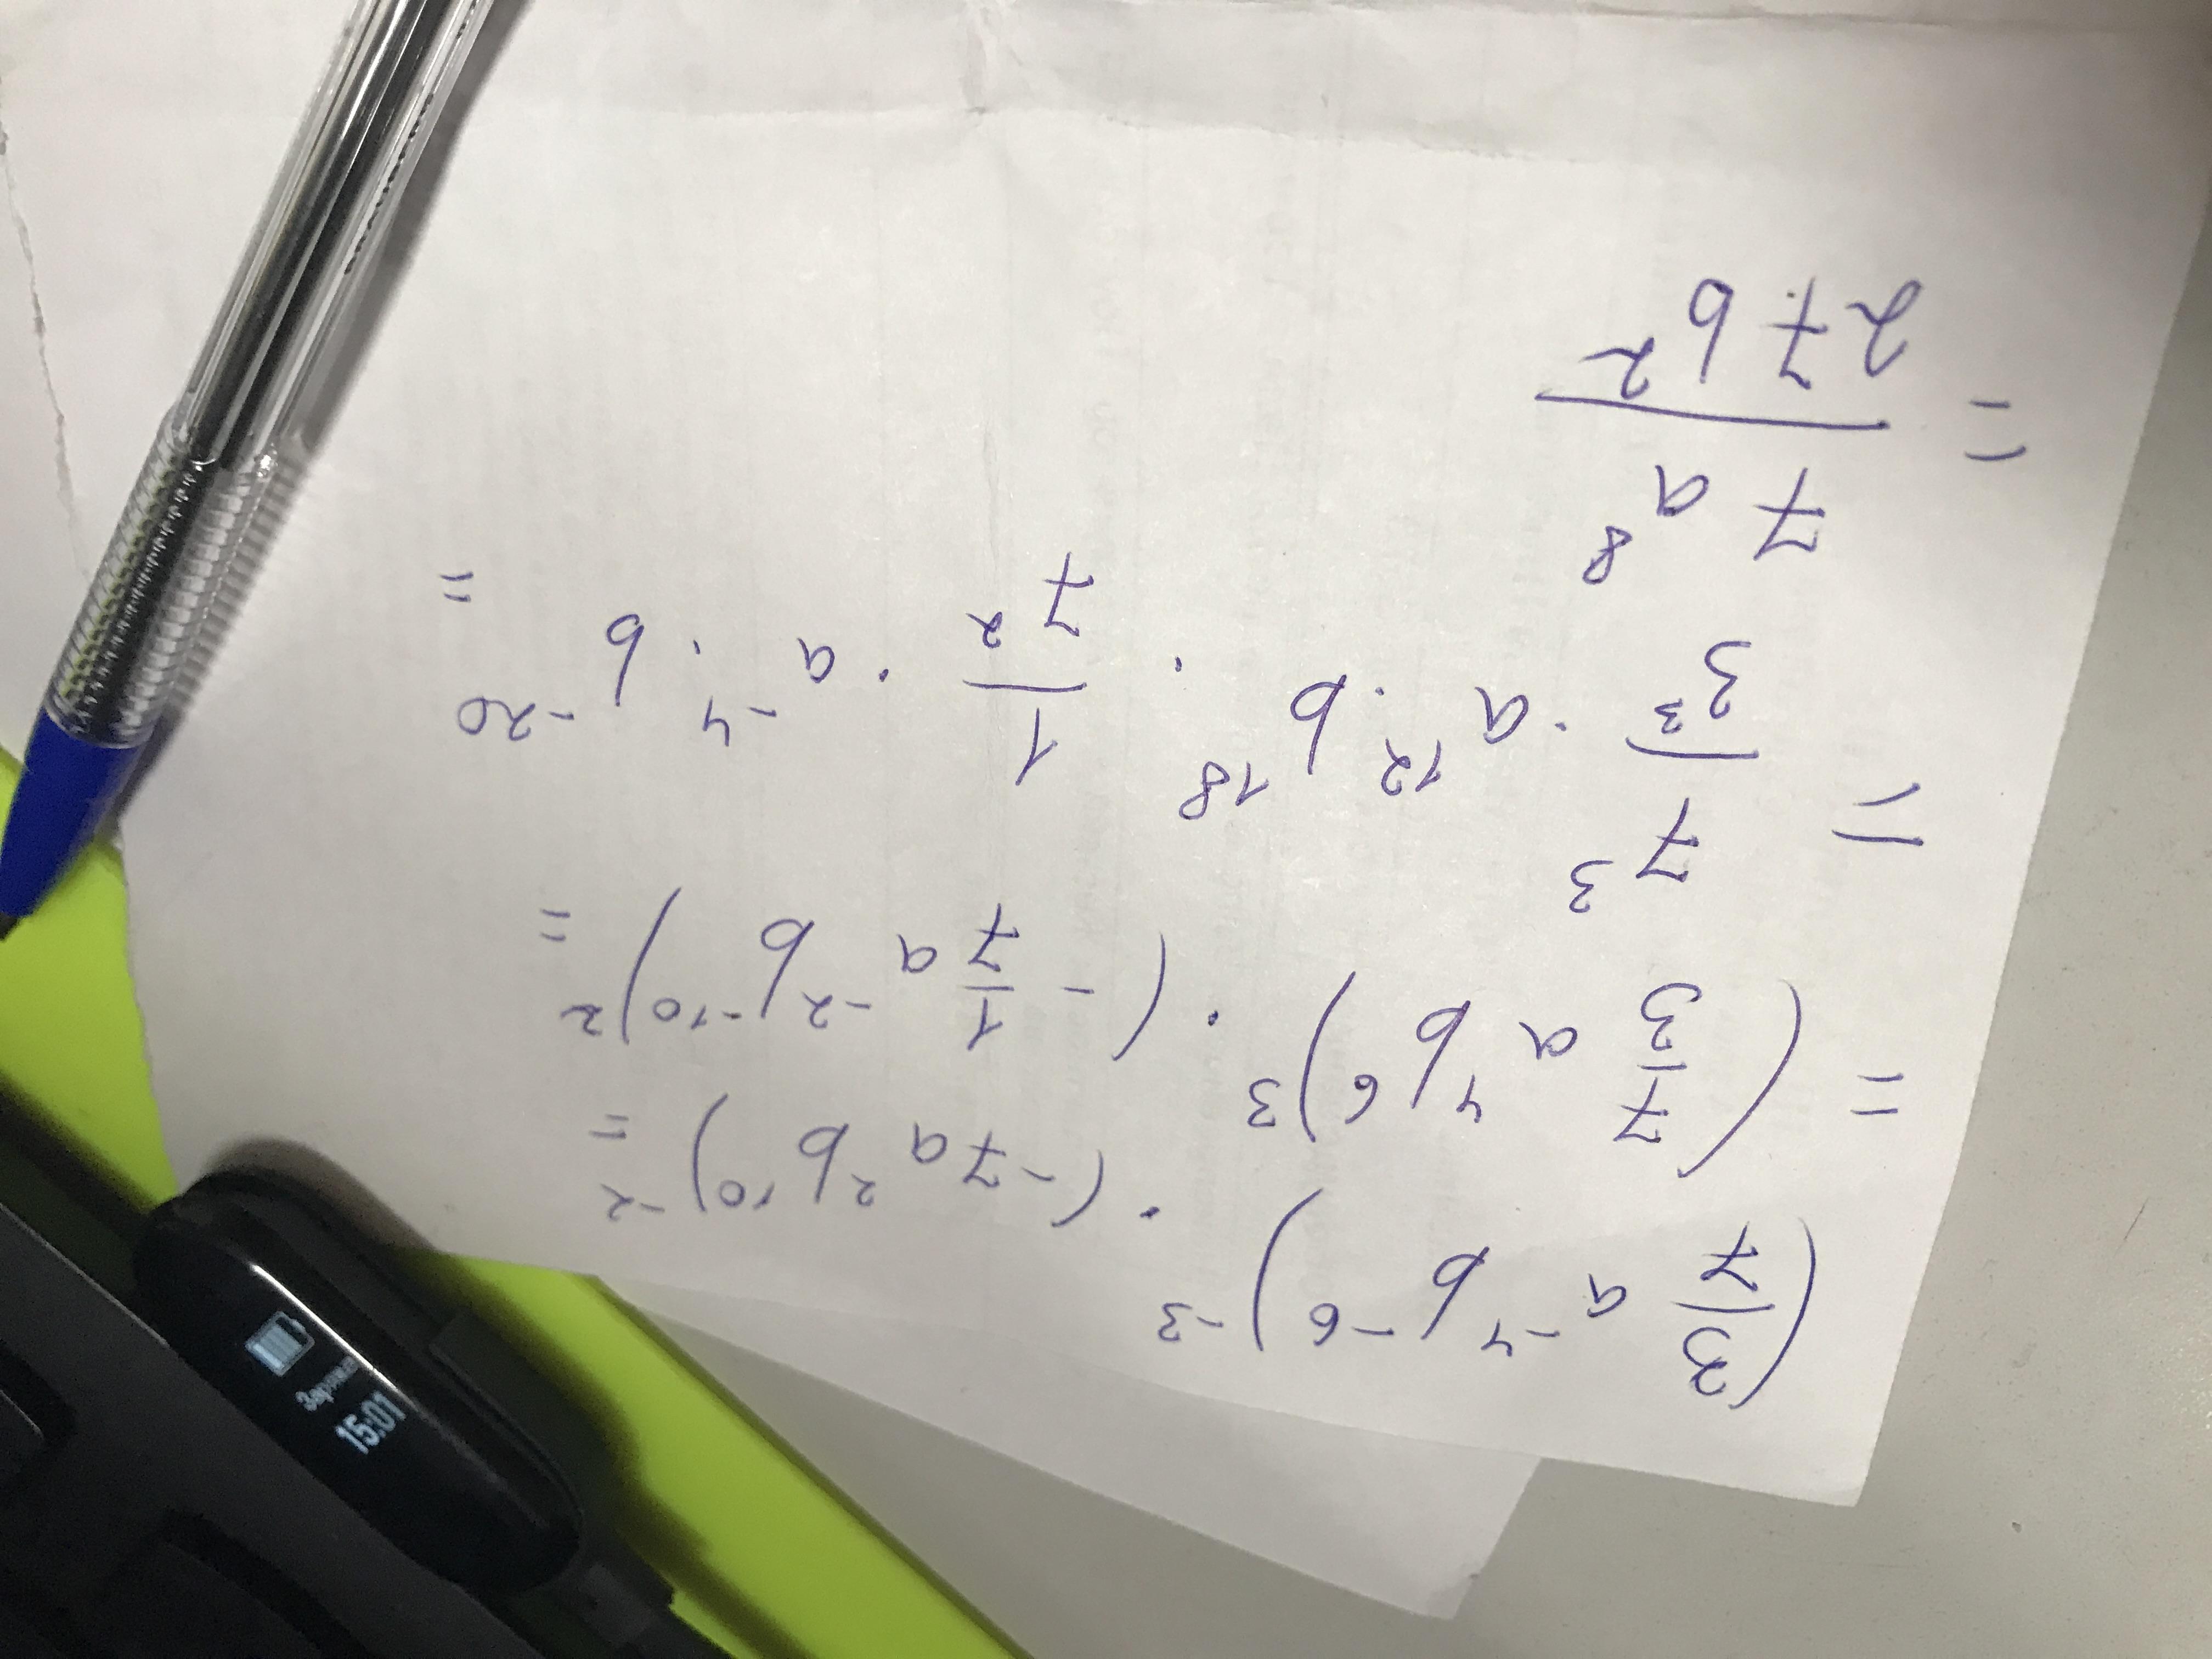 (3/7 a⁻⁴ b⁻⁶)⁻³ · (-7 a² b¹⁰)⁻² =
= (7/3 a⁴ b⁶)³ · (- 1/7 a⁻² b⁻¹⁰)² =
= 7³/3³ · a¹² · b¹⁸ · 1/7² · a⁻⁴ · b⁻²⁰ =
= 7 a⁸ / 27 b²
15:01